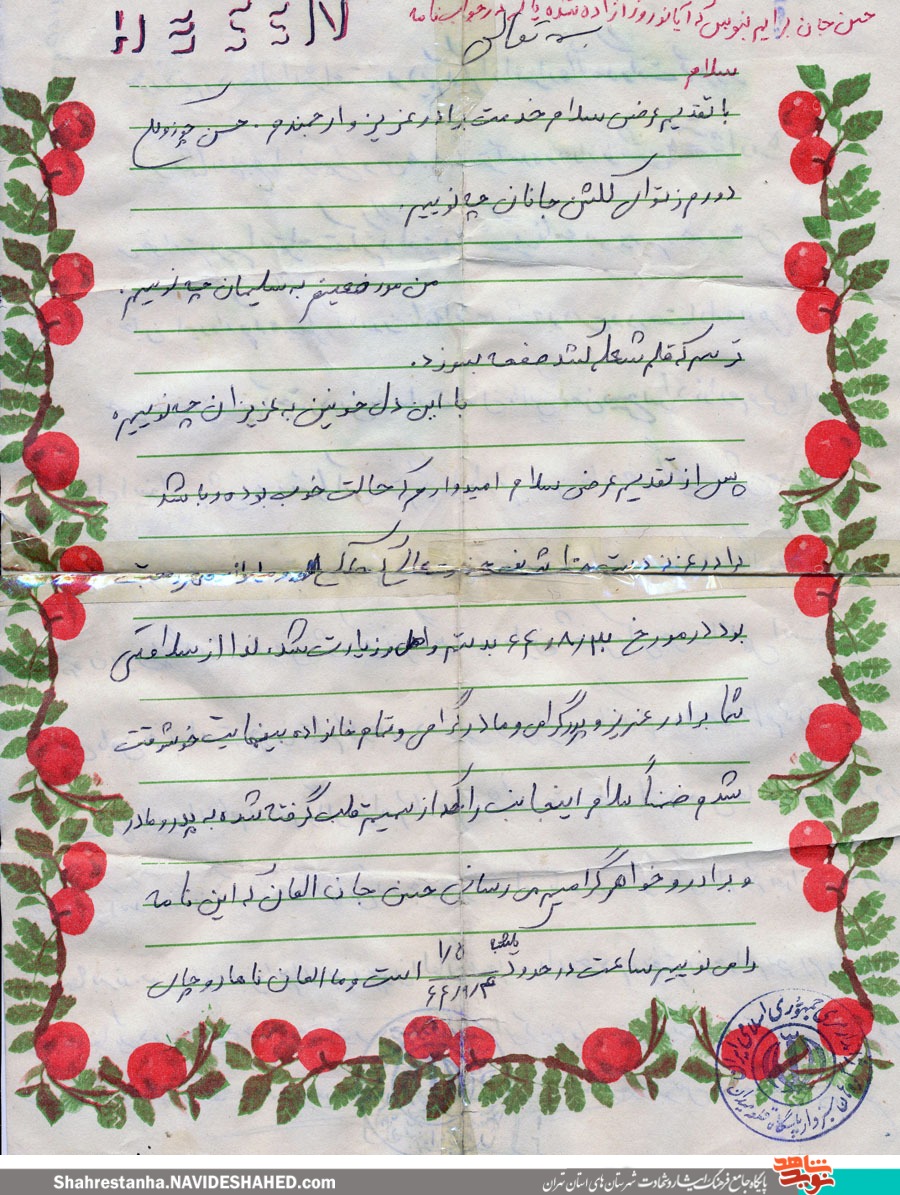 حسن جان برایم بنویس که آیا نوروز آزاده شده یا نه در جواب نامه
HESEN
بسمه تعالی
سلام
با تقدیم عرض سلام خدمت برادر عزیز و ارجمندم. حسن
دورم ز تو ای گلشن جانان چه نویسم.
من مور ضعیفم به سلیمان چه نویسم.
ترسم که قلم شعله کشد صفحه بسوزد.
با این دل خونین به عزیزان چه نویسم.
پس از تقدیم عرض سلام امیدوارم که حالت خوب بوده و باشد
برادر عزیز
بود در مورخ ۶۴/۸/۳۰ بدستم واصل و زیارت شد. لذا از سلامتی
شما برادر عزیز و پدر گرامی و مادر گرامی و تمام خانواده بینهایت خوشوقت
شدم ضمناً سلام اینجانب را که از صمیم قلب گرفته شده به پدر و مادر
و برادر و خواهر گرامیم می رسانی حسن جان الهان که این نامه
را می نویسم ساعت در حدود ۱/۵ است و ما الهان ناهار و چای
یکشنبه
۶۴/۹/۳
جمهوری اسلامی ایران
Shahrestanha.NAVIDESHAHED.com
پایگاه جامع فرهنگ ایثار و شهادت شهرستان های استان تهران
نوید شاهد